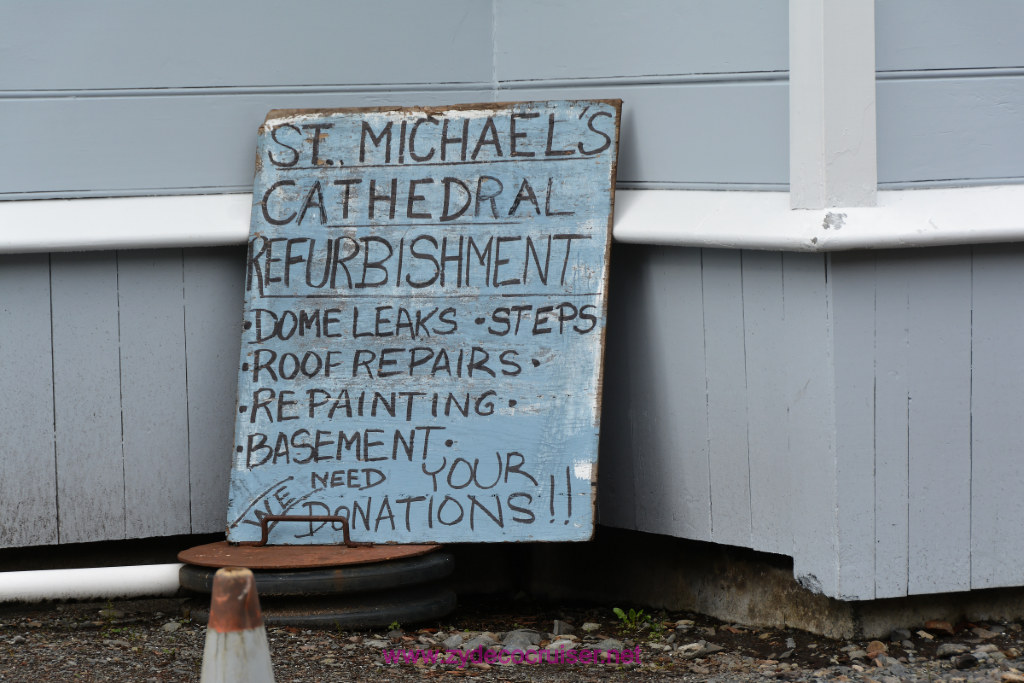 ST. MICHAEL'S
CATHEDRAL
REFURBISHMENT
•DOME LEAKS •STEPS
•ROOF REPAIRS•
•REPAINTING•
•BASEMENT•
WE NEED YOUR
DONATIONS!!
www.zydecocruiser.net